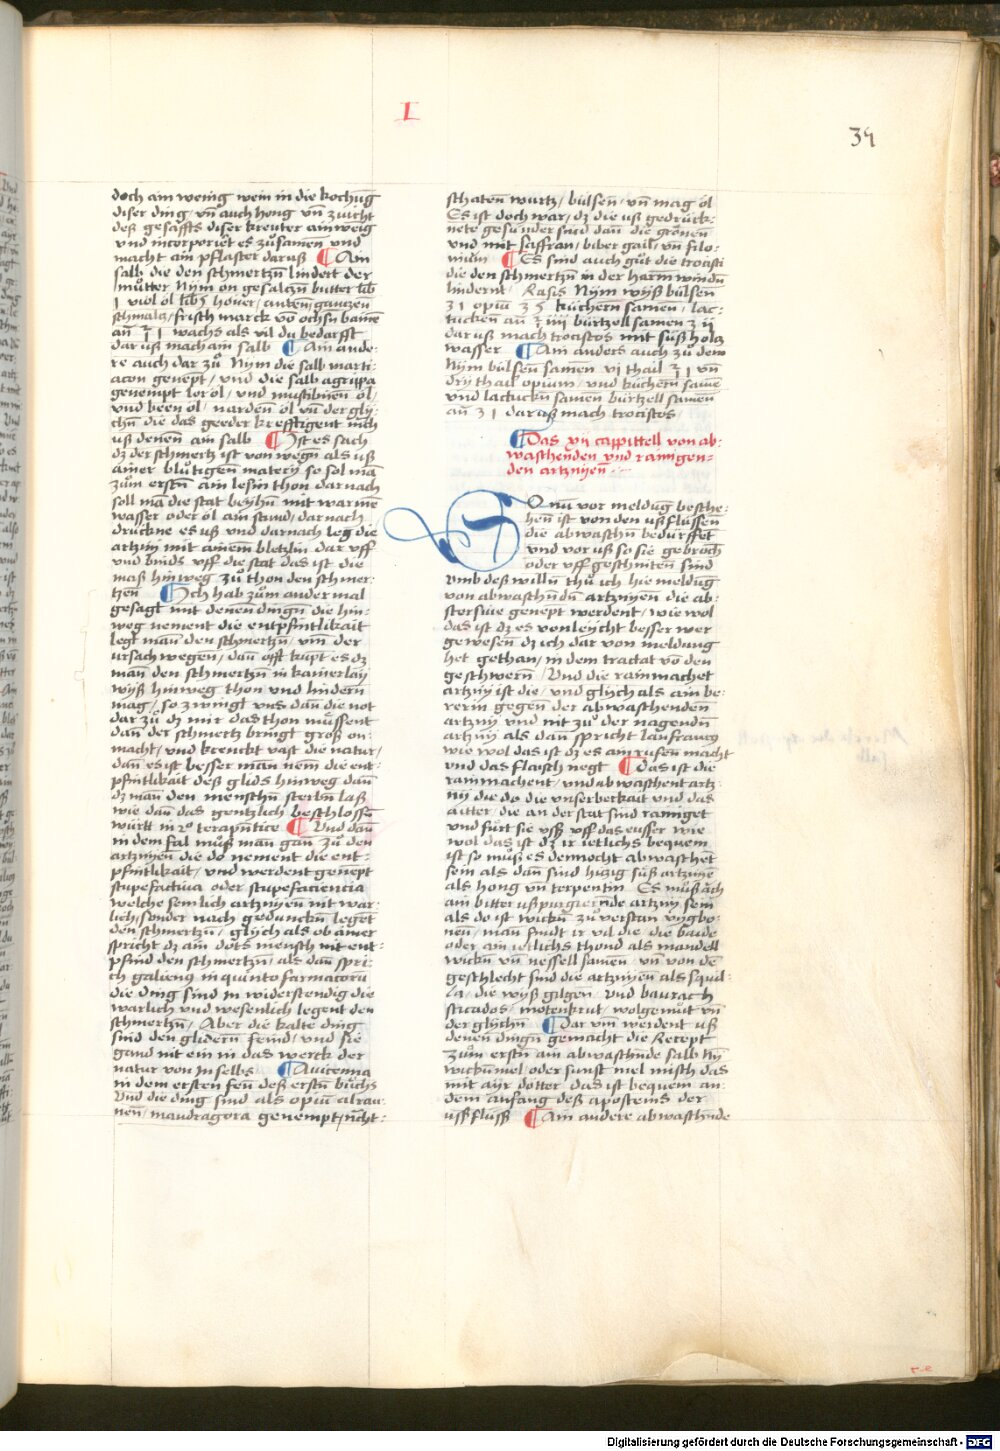 I
39
doch ain wenig wein in die kochūg
diser ding / vn̄ auch hong vn̄ zuicht
deß gesaffts diser kreuter ainwenig
vnd incorporiert es zůsamen vnd
macht ain pflaster daruß ¶ Ain
salb die den schmertzn̄ lindert der
můtter Nÿm on gesalczn̄ butter lib
1 viol öl lib s hőner / anten / ganczen
schmalcz / frisch marck vō ochsn̄ baine
an̄ ʒ 1 wachs als vil du bedarfft
dar uß mach ain salb ¶ Ain ande-
re auch dar zů Nÿm die salb marti-
acon genēpt / vnd die salb agrippa
genempt lor öl / vnd mustilinen öl /
vnd been öl / narden öl vn̄ der glÿ-
chn̄ die das geeder krefftigent mch
uß denen ain salb ¶ Ist es sach
dz der schmertz ist von wegn̄ als uß
ainer blůtigen matery so sol mā
zům erstn̄ ain lesin thon darnach
soll mā die stat beÿhn̄ mit warmē
wasser oder öl ain stund / darnach
drückne es uß vnd darnach leg die
artznÿ mit ainem bletzlin dar vff
vnd binds vff die stat das ist die
maß hinweg zů thon den schmer-
tzen ¶ Ich hab zům ander mal
gesagt mit denen dingn̄ die hin-
weg nement die entpfintlikait
legt man̄ den schmertzn̄ / vm̄ der
ursach wegen / dan̄ offt kūpt es dz
man̄ den schmertzn̄ in kainerlay
wÿß hinweg thon vnd lindern
mag / so zwingt vns dan̄ die not
dar zů dz mir das thon müssent
dan̄ der schmertz bringt groß on-
macht / vnd krenckt vast die natur /
dan̄ es ist besser man nem̄ die ent-
pfintlikait deß glids hinweg dan̄
dz man̄ den menschn̄ sterbn̄ laß
wie dan̄ das gentzlich beschlossn̄
württ in 2º terapn̄tice ¶ Vnd dan̄
in dem fal můß man gan̄ zů den
artznÿen die do nement die ent-
pfintlikait / vnd werdent genēpt
stupefactiua oder stupefaciencia
welche semlich artznÿen nit war-
lich / sonder nach geduncken̄ legēt
den schmertzn̄ / glÿch als ob ainer
spricht dz ain dots mensch nit ent-
pfind den schmertzn̄ / als dan̄ spri-
ch galienꝰ in quinto farmacorū
die ding sind in widerstendig die
warlich vnd wesenlich legent den
schmertzn̄ / Aber die kalte ding
sind den glidern̄ feind / vnd sie
gand nit ein in das werck der
natur von jn selbs ¶ Auicenna
in dem ersten fen̄ deß erstn̄ bůchs
Vnd die ding sind als opiū alrau-
nen / mandragora genempt / nācht-
schaten wurtz / bülsen̄ / vn̄ mag öl
Es ist doch war / dz die uß gedrück-
nete gesünder sind dan̄ die grönen
vnd mit saffran / biber gail / vn̄ filo-
nium ¶ Es sind auch gůt die trocisci
die den schmertzn̄ in der harm windn̄
lindernt / Rasis Nÿm wÿß bülsen
ʒ 1 opiū ʒ s küchern samen / lac-
tucken an̄ ʒ iiii bürtzell samen ʒ ii
dar uß mach trociscos mit süß holcz
wasser ¶ Ain anders auch zů dem
Nÿm bülsen̄ samen vi thail ʒ 1 vn̄
drÿ thail opium / vnd kücherń samē
vnd lactuckn̄ samen bürtzell samen
an̄ ʒ 1 daruß mach trociscos
¶ Das xii cappittell von ab-
waschenden vnd rainigen-
den artznÿen
SO nū vor meldūg besche-
hen̄ ist von den ußflüssen
die abwaschn̄ bedürffēt
vnd vor uß so sie gebroch̄
oder vff geschniten sind
vmb deß willn̄ thů ich hie meldūg
von abwaschndn̄ artznÿen die ab-
stersiue genēpt werdent / wie wol
das ist dz es vonleÿcht besser wer
gewesen dz ich dar von meldung
het gethan / in dem tractat vō den
geschwern̄ / Vnd die rainmachet
artznÿ ist die / vnd glÿch als ain be-
rerin gegen der abwaschenden
artznÿ vnd nit zů der nagendn̄
artznÿ als dan̄ spricht lanfrancꝰ
wie wol das ist dz es ain růfen macht
vnd das flaisch negt ¶ Das ist die
rainmachent / vnd abwaschent artz-
nÿ die do die vnserberkait vnd das
aitter / die an der stat sind rainiget
vnd fürt sie vss vff das eusser wie
wol das ist dz ir ietlichs bequem
ist so můß es dennocht abwaschēt
sein als dan̄ sind hitzig süß artznÿē
als hong vn̄ terpentin / Es můß ach
ain bitter ußpurgierende artznÿ sein
als do ist wickn̄ zů verstan vÿgbo-
nen̄ / man findt ir vil die die baide
oder ain ietlichs thond als mandell
wickn̄ vn̄ nessell samen / vn̄ von dē
geschlecht sind die artznÿen als squil-
la / die wÿß gilgen / vnd baurach
sticados / motenkrut / wolgemůt vn̄
der glÿchn̄ ¶ Dar vm̄ werdent uß
denen dingn̄ gemacht die Recept
zům erstn̄ ain abwaschnde salb Nÿ
wicknmel / oder sunst mel misch das
mit aÿr dotter das ist bequem an
dem anfang deß apostems der
ussflüss ¶ Ain andere abwaschnde
Digitalisierung gefördert durch die Deutsche Forschungsgemeinschaft - DFG